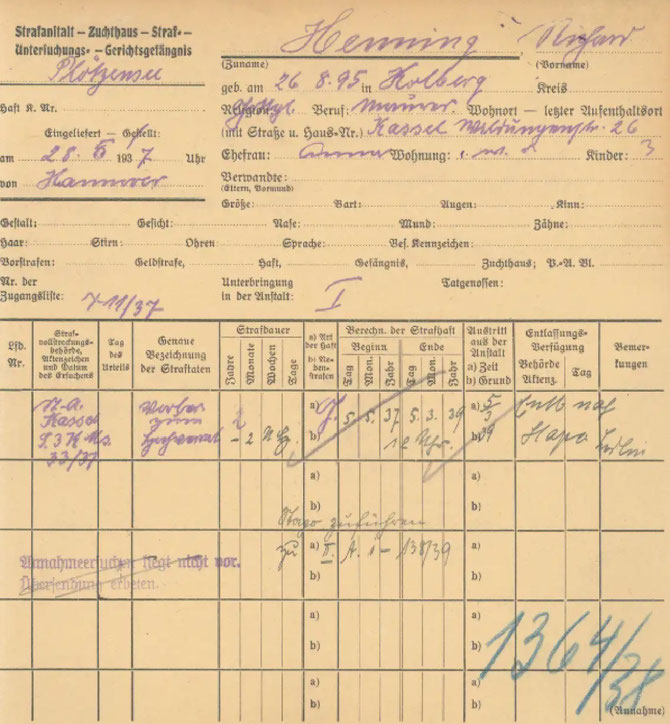 Strafanstalt – Zuchthaus – Straf- –
Untersuchungs- – Gerichtsgefängnis
Plötzensee
Henning Richard
(Zuname) (Vorname)
geb. am 26.8.95 in Kolberg Kreis
Haft K. Nr.
Religion: Beruf: Maurer Wohnort – letzter Aufenthaltsort
Eingeliefert – Gestellt:
(mit Straße u. Haus-Nr.) Kassel Wildungenstr. 26
am 28. 6 1937 Uhr
Ehefrau: Anna Wohnung: Kinder: 3
von Hannover
Verwandte:
(Eltern, Vormund)
Größe: Bart: Augen: Kinn:
Gestalt: Gesicht: Nase: Mund: Zähne:
Haar: Stirn: Ohren: Sprache: Bes. Kennzeichen:
Vorstrafen: Geldstrafe, Haft, Gefängnis, Zuchthaus; P.-A. Bl.
Nr. der Zugangsliste: 11/37
Unterbringung in der Anstalt: I
Tatgenossen:
Lfd. Nr.
Straf-
vollstreckungs-
behörde,
Aktenzeichen
und Datum
des Ersuchens
Tag
des
Urteils
Genaue
Bezeichnung
der Straftaten
Strafdauer
Jahre
Monate
Wochen
Tage
a) Art
der Haft
b) Ne-
ben-
strafen
Berechn. der Strafhaft
Beginn Ende
Tag Mon. Jahr Tag Mon. Jahr
Austritt
aus der
Anstalt
a) Zeit
b) Grund
Entlassungs-
Verfügung
Behörde Tag
Aktenz.
Bemer-
kungen
St. A.
Kassel
33/37
Vorber.
zum
Hochverrat
2
a) 5. 5. 37 5. 3. 39 a) 5/3
b) 12 Uhr b) 39
Entl nach
Stapo Berlin
a)
b)
Stapo zuführen
zu II. A. 138/39
Annahmeersuchen liegt nicht vor.
Übersendung erbeten.
a) a)
b) b)
a) a)
b) b)
1364/38
a) a)
b) b)
(Annahme)